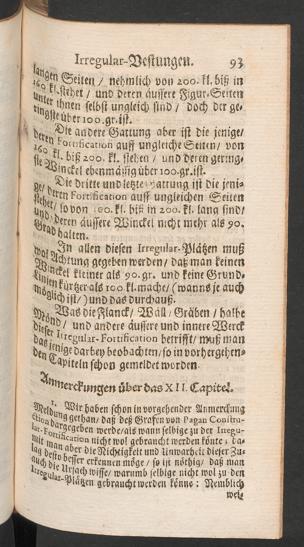 Irregular-Vestungen. 93
langen Seiten / nehmlich von 200. kl. biß in
260 kl. stehet / und deren äussere Figur-Seiten
unter ihnen selbst ungleich sind / doch der ge-
ringste über 100. gr. ist.
Die andere Gattung aber ist die jenige /
deren Fortification auff ungleiche Seiten / von
160. kl. biß 200. kl. stehen / und deren gering-
ste Winckel ebenmäßig über 100. gr. ist.
Die dritte und letzte Gattung ist die jeni-
ge / deren Fortification auff ungleichen Seiten
stehet / so von 100. kl. biß in 200. kl. lang sind /
und deren äussere Winckel nicht mehr als 90.
Grad halten.
In allen diesen Irregular-Plätzen muß
wol Achtung gegeben werden / daß man keinen
Winckel kleiner als 90. gr. und keine Grund-
Linien kürtzer als 100 kl. mache / (wanns je auch
möglich ist /) und das durchauß.
Was die Flanck / Wäll / Gräben / halbe
Mönd / und andere äussere und innere Werck
dieser Irregular-Fortification betrifft / muß man
das jenige darbey beobachten / so in vorhergehen-
den Capiteln schon gemeldet worden.
Anmerckungen über das XII. Capitel.
1. Wir haben schon in vorgehender Anmerckung
Meldung gethan / daß deß Grafen von Pagan Constru-
ction dargegeben werde / als wann selbige zu der Irregu-
lar-Fortification nicht wol gebraucht werden könte; da-
mit man aber die Nichtigkeit und Unwarheit dieser Zu-
lag desto besser erkennen möge / so ist nöthig / daß man
auch die Ursach wisse / warumb selbige nicht wol zu den
Irregular-Plätzen gebraucht werden könne: Nemblich
weil